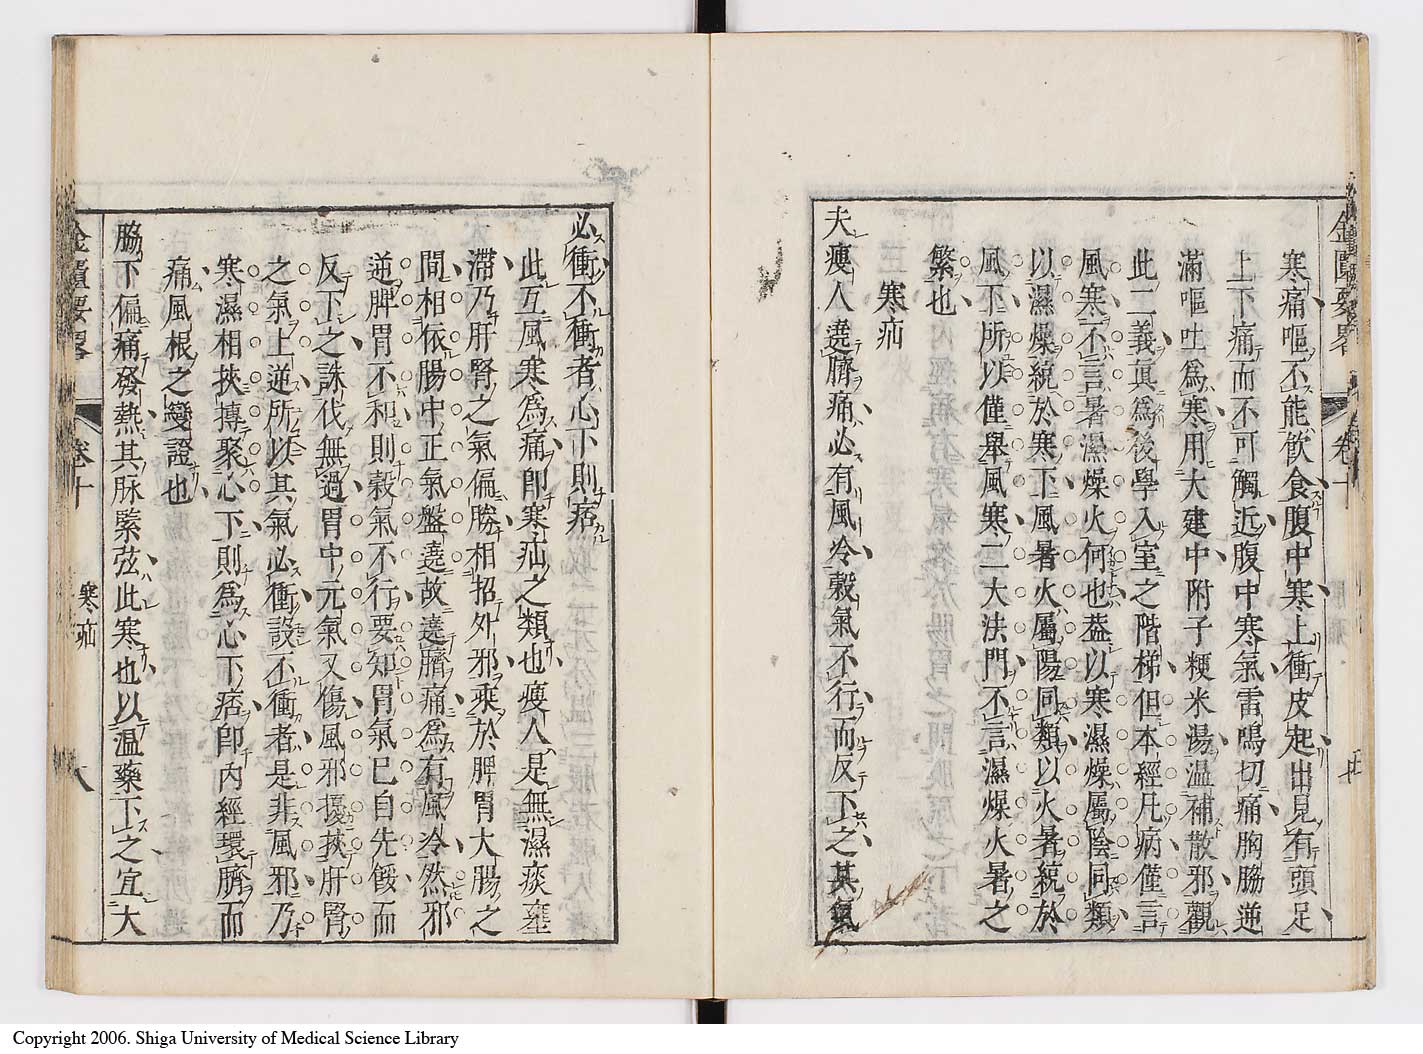 金匱要畧 卷十
寒痛嘔不能飲食腹中寒上衝皮起出見有頭足
上下痛而不可觸近腹中寒氣雷鳴切痛胸脇逆
滿嘔吐爲寒用大建中附子粳米湯温補散邪觀
此二義眞爲後學入室之階梯但本經凡病僅言
風寒不言暑濕燥火何也葢以寒濕燥屬陰同類
以濕燥統於寒下風暑火屬陽同類以火暑統於
風下所以僅舉風寒二大法門不言濕燥火暑之
繁也
寒疝
夫瘦人遶臍痛必有風冷穀氣不行而反下之其氣
必衝不衝者心下則痞
此互風寒爲痛卽寒疝之類也瘦人是無濕痰壅
滯乃肝腎之氣偏勝相招外邪乘於脾胃大腸之
間相依腸中正氣盤遶故遶臍痛爲有風冷然邪
逆脾胃不和則穀氣不行要知胃氣已自先餒而
反下之誅伐無過胃中元氣又傷風邪擾挾肝腎
之氣上逆所以其氣必衝設不衝者是非風邪乃
寒濕相挾摶聚心下則爲心下痞卽内經環臍而
痛風根之變證也
脇下偏痛發熱其脉緊弦此寒也以温藥下之宜大
金匱要畧 卷十 寒疝 八
Copyright 2006. Shiga University of Medical Science Library